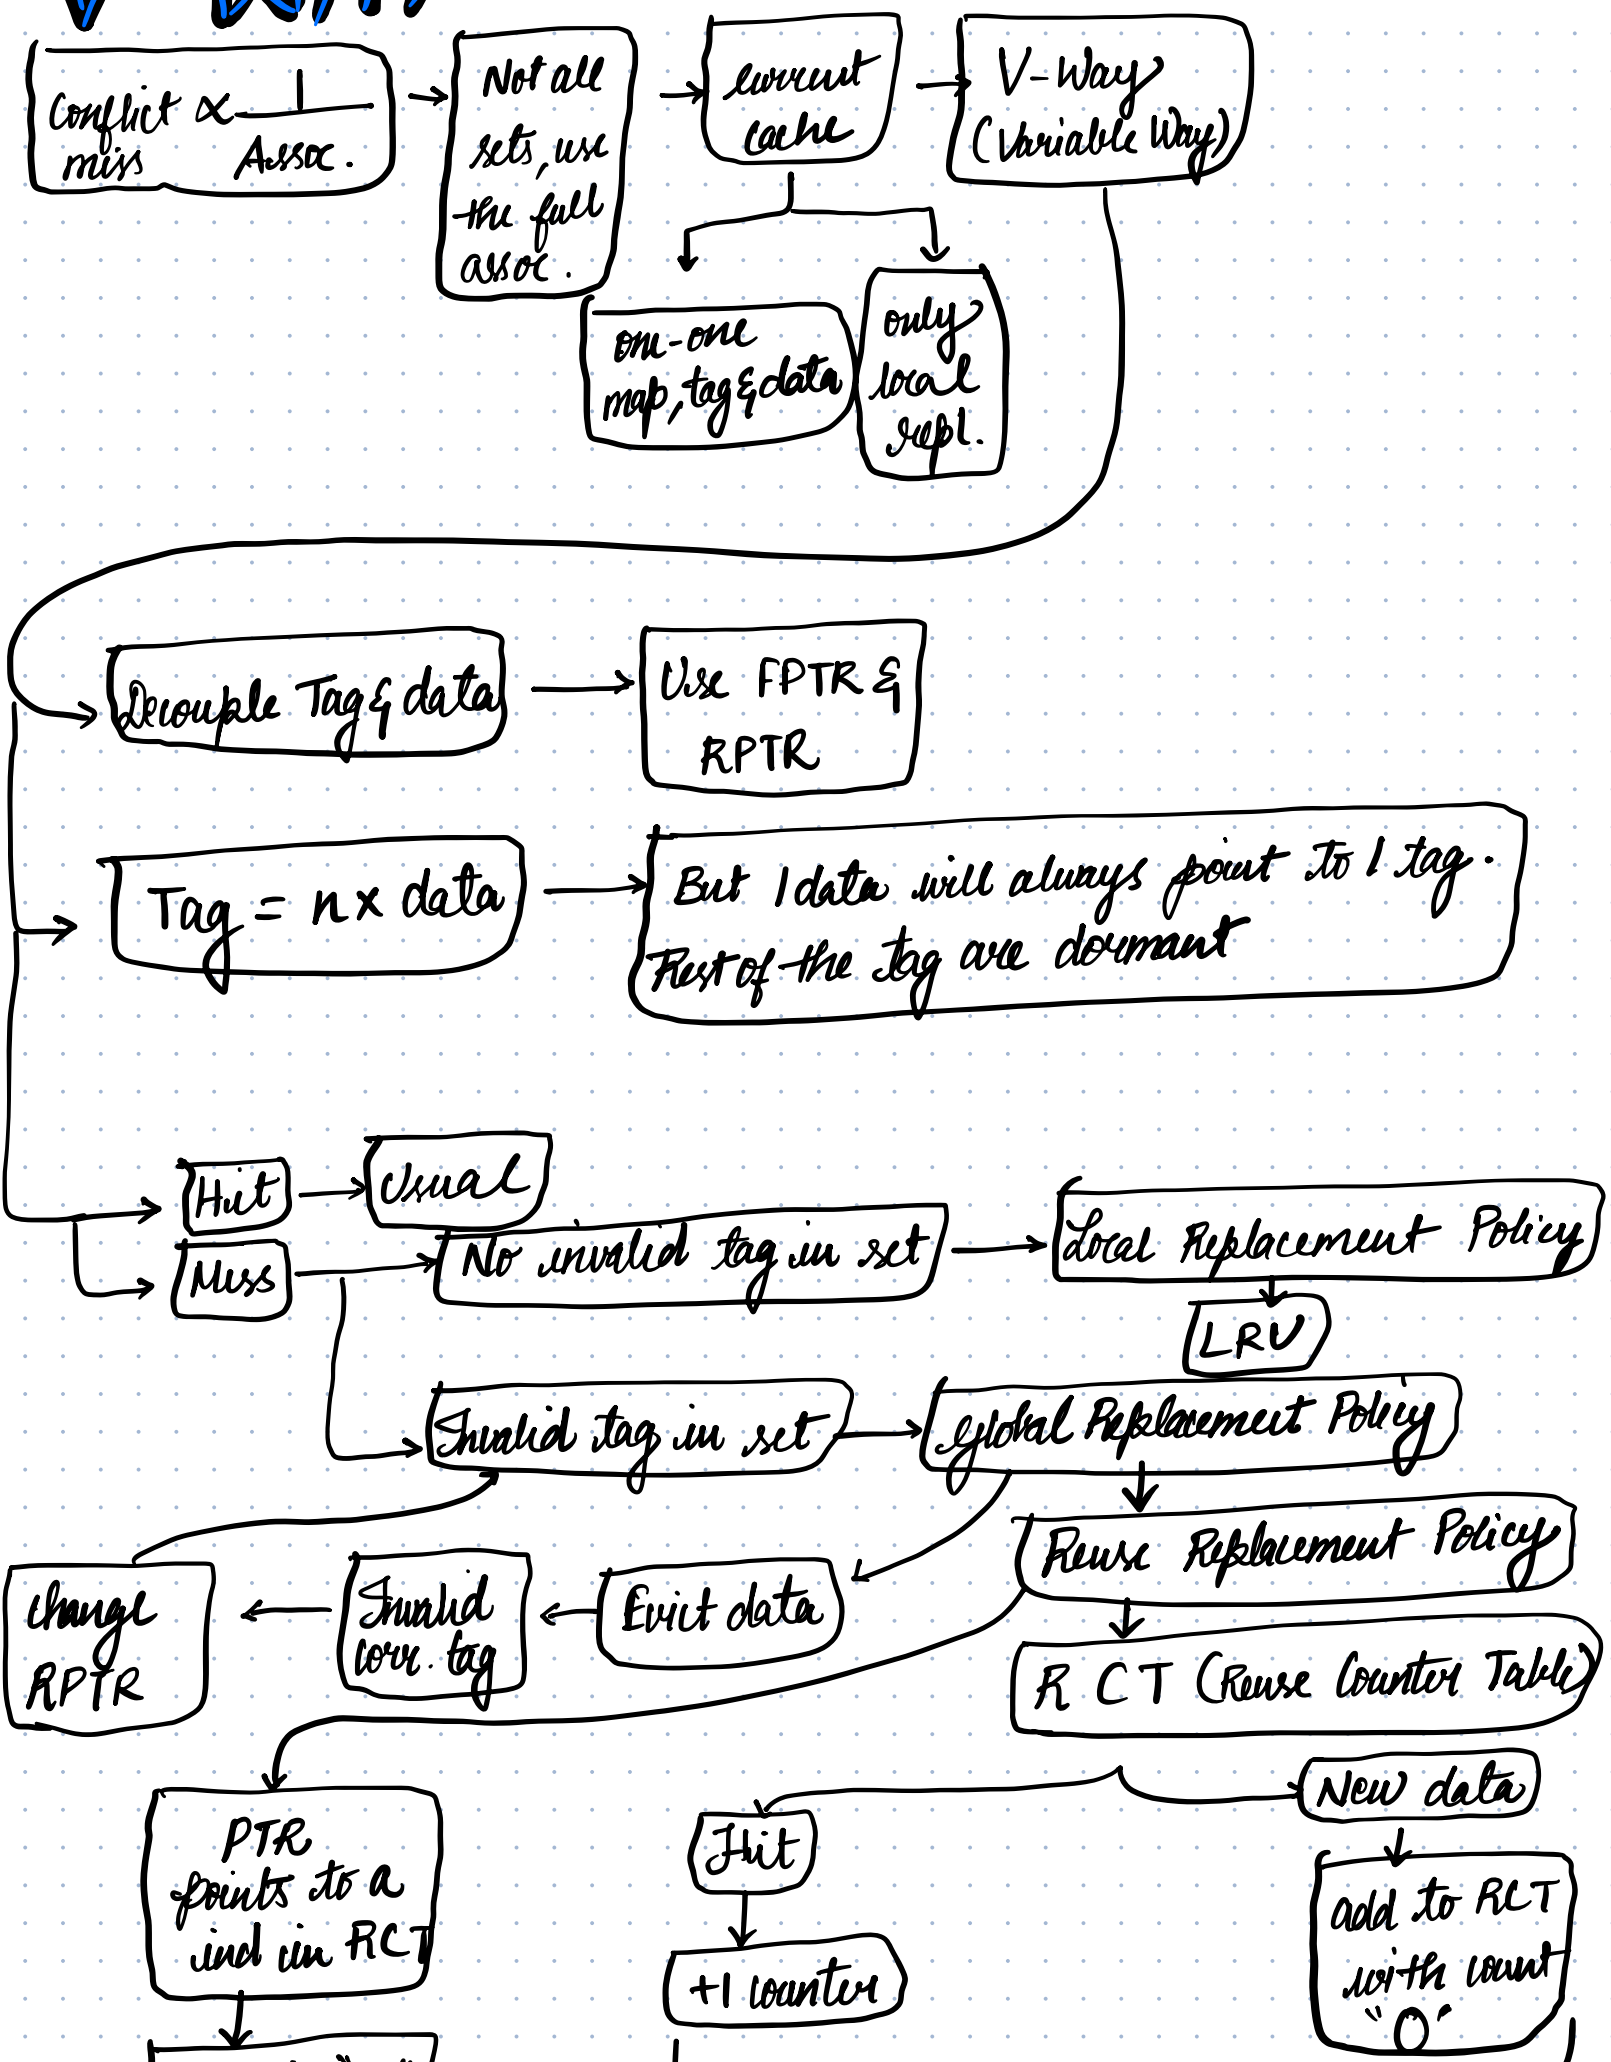 Conflict ∝ 1
miss Assoc.
Not all
sets, use
the full
assoc.
current
cache
V-Way
(Variable Way)
one-one
map, tag & data
only
local
repl.
Decouple Tag & data
Use FPTR &
RPTR
Tag = n x data
But 1 data will always point to 1 tag.
Rest of the tag are dormant
Hit
Usual
Miss
No invalid tag in set
Local Replacement Policy
LRU
Invalid tag in set
Global Replacement Policy
Reuse Replacement Policy
Evict data
Invalid
corr. tag
change
RPTR
R C T (Reuse Counter Table)
PTR
points to a
ind in RCT
Hit
+1 counter
New data
add to RCT
with count
"0"